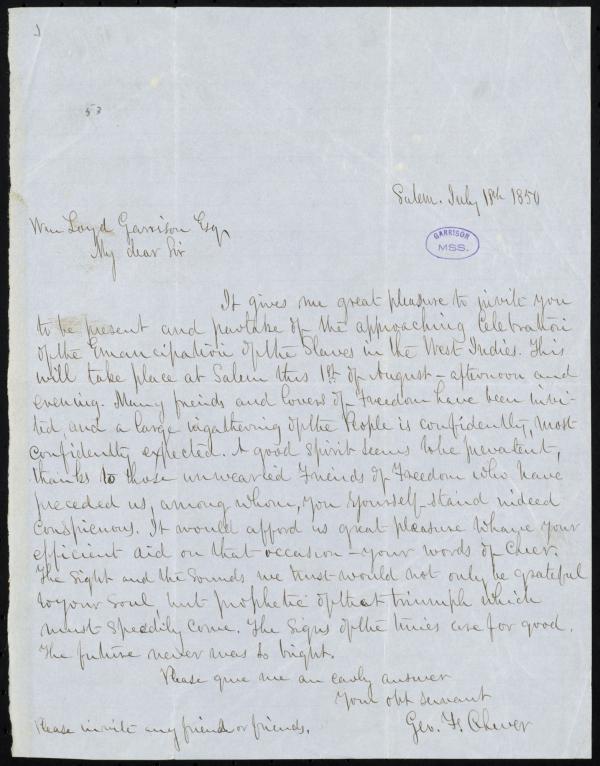 53
Salem. July 18th 1850
Wm Loyd Garrison Esq,
My dear Sir
GARRISON
MSS.
It gives me great pleasure to invite you
to be present and partake of the approaching Celebration
of the Emancipation of the Slaves in the West Indies. This
will take place at Salem this 1st of August - afternoon and
evening. Many freinds and lovers of Freedom have been invi-
ted, and a large ingathering of the People is confidently, most
confidently expected. A good Spirit seems to be prevalent,
thanks to those unwearied Friends of Freedom who have
preceded us, among whom, you yourself stand indeed
conspicuous. It would afford us great pleasure to have your
efficient aid on that occasion - your words of Cheer.
The Sight and the Sounds we trust would not only be grateful
to your Soul, but prophetic of that triumph which
must speedily come. The Signs of the times are for good.
The future never was so bright.
Please give me an early answer
Your obt servant
Geo. F. Chever
Please invite any friend or friends.